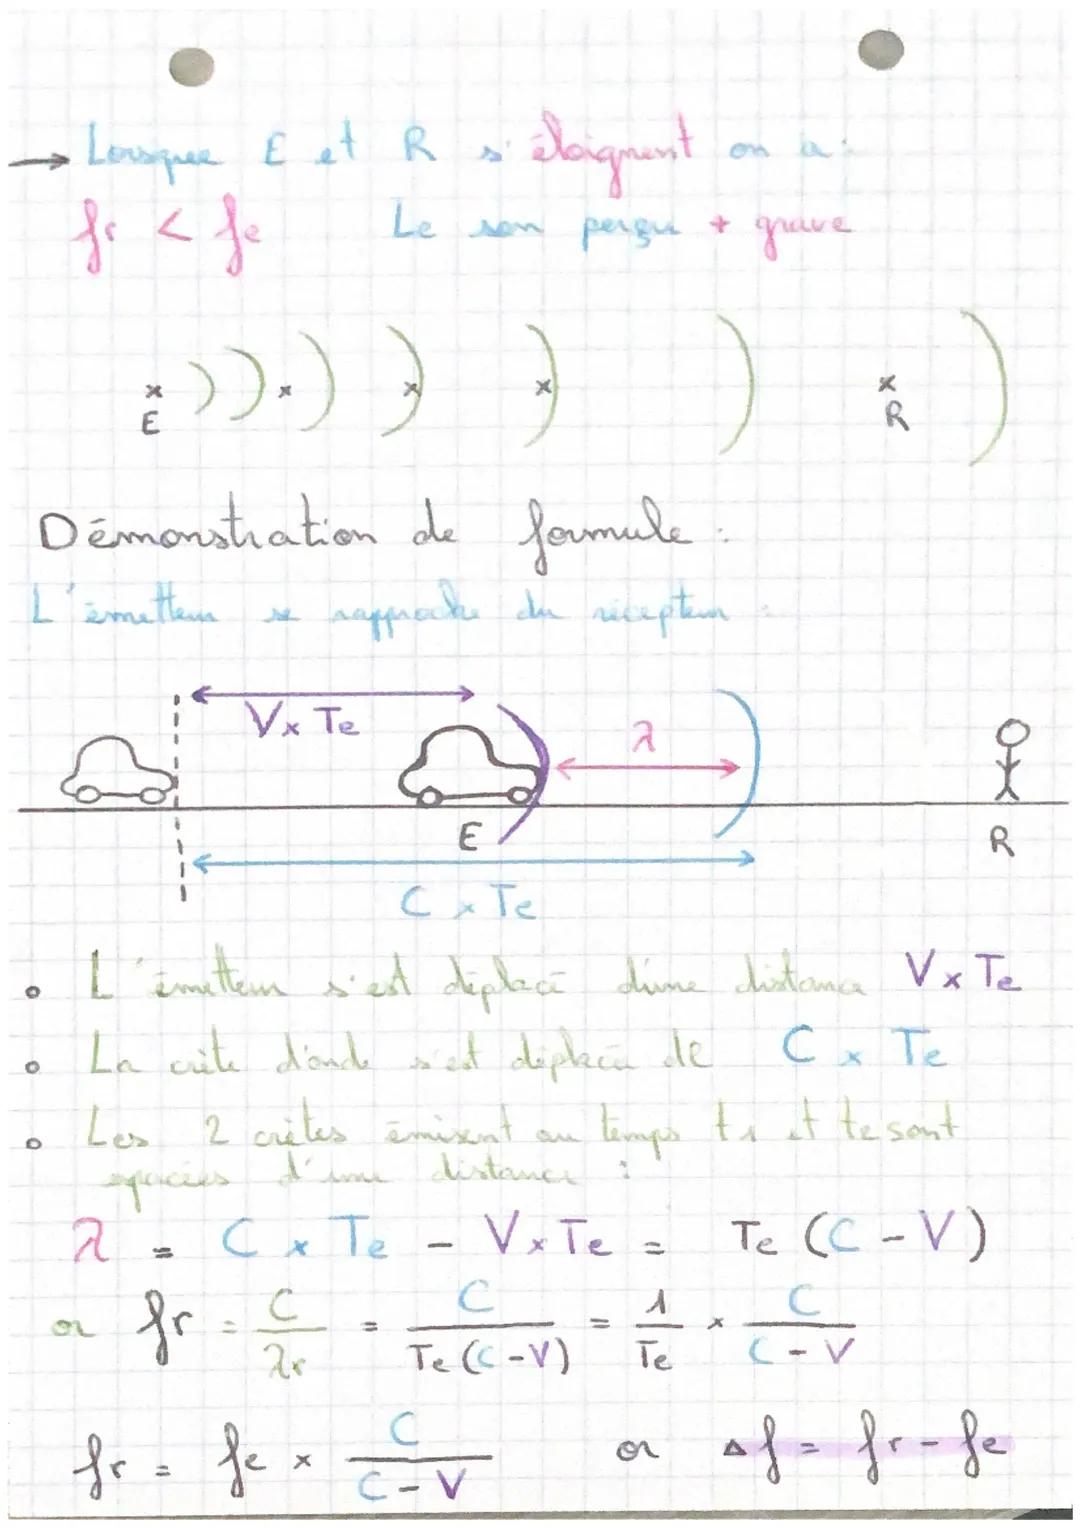 → Lorsque E et R s'éloignent on a :
fr < fe Le son perçu + grave
E R
Démonstration de formule :
L'émetteur se rapproche du récepteur :
V x Te
λ
E R
C x Te
• L'émetteur s'est déplacé d'une distance V x Te
• La crête d'onde s'est déplacée de C x Te
• Les 2 crêtes émisent au temps t1 et te sont
espacées d'une distance :
λ = C x Te - V x Te = Te (C - V)
or fr = C/λr = C/Te (C-V) = 1/Te x C/C - V
fr = fe x C/C - V or Δf = fr - fe